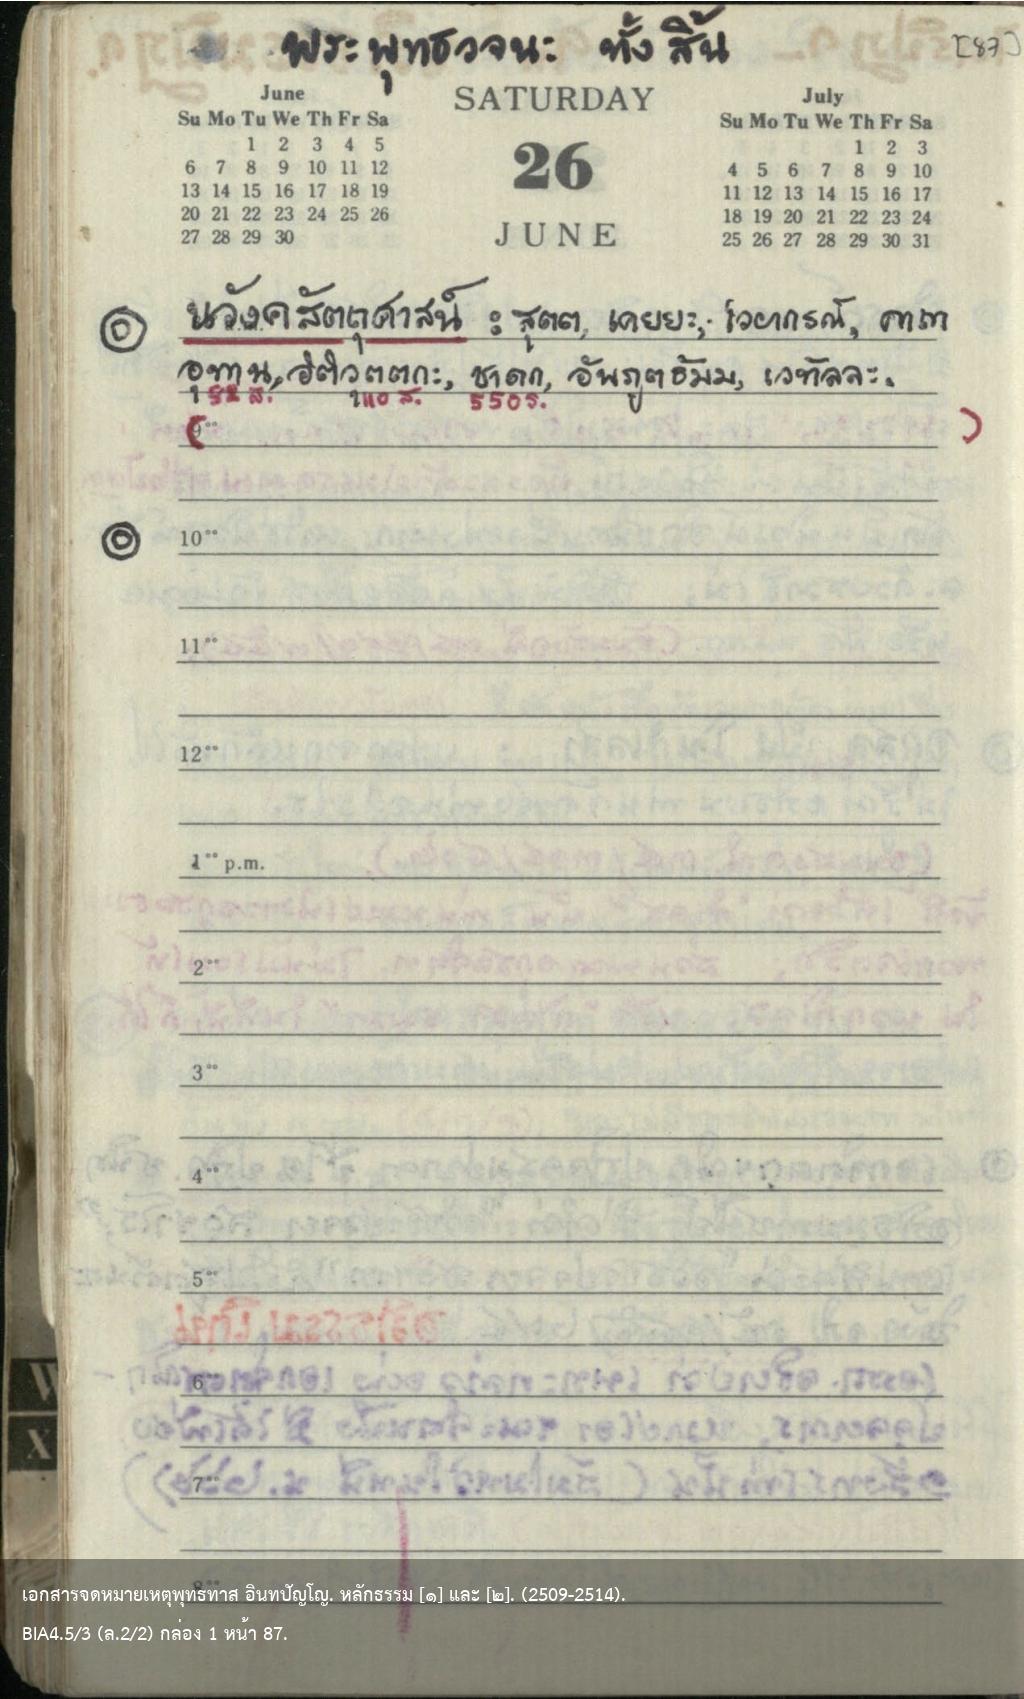 พระพุทธวจนะ ทั้งสิ้น [87]
June
Su Mo Tu We Th Fr Sa
1 2 3 4 5
6 7 8 9 10 11 12
13 14 15 16 17 18 19
20 21 22 23 24 25 26
27 28 29 30
SATURDAY
26
JUNE
July
Su Mo Tu We Th Fr Sa
1 2 3
4 5 6 7 8 9 10
11 12 13 14 15 16 17
18 19 20 21 22 23 24
25 26 27 28 29 30 31
นวังคสัตถุศาสน์ : สุตต, เคยยะ, ไวยากรณ์, คาถา
อุทาน, อิติวุตตกะ, ชาดก, อัพภูตธัมม, เวทัลละ.
ส. 110 ส. 550 ร.
( 9°° )
10°°
11°°
12°°
1°° p.m.
2°°
3°°
4°°
5°°
6°°
7°°
8°°
W
X
เอกสารจดหมายเหตุพุทธทาส อินทปัญโญ. หลักธรรม [๑] และ [๒]. (2509-2514).
BIA4.5/3 (ล.2/2) กล่อง 1 หน้า 87.